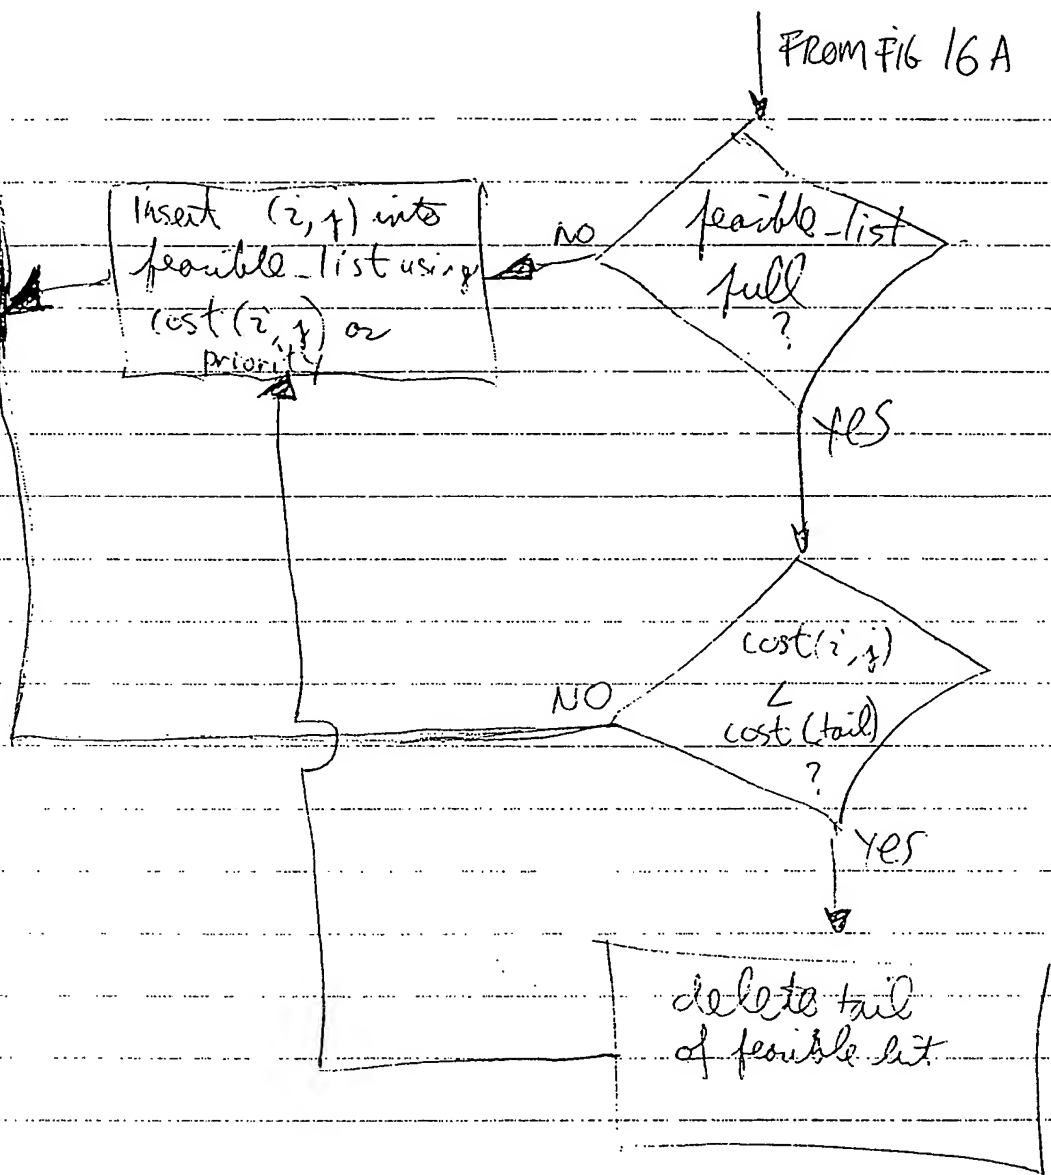 FROM FIG 16 A
feasible_list
full
?
NO
Insert (i, j) into
feasible_list using
cost (i, j) or
priority
YES
cost(i, j)
<
cost (tail)
?
NO
YES
delete tail
of feasible list